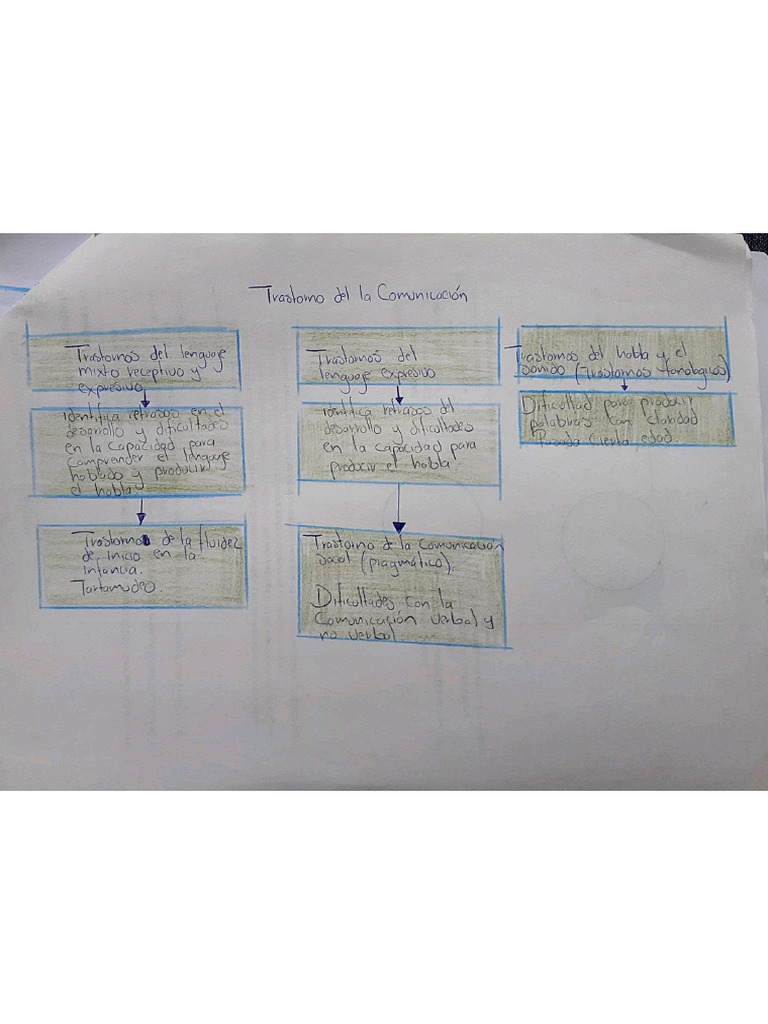 Trastorno del la Comunicación
Trastornos del lenguaje
mixto receptivo y
expresivo
identifica retrasos en el
desarrollo y dificultades
en la capacidad para
comprender el lenguaje
hablado y producir
el habla
Trastornos de la fluidez
de inicio en la
infancia.
Tartamudeo.
Trastornos del
lenguaje expresivo
identifica retrasos del
desarrollo y dificultades
en la capacidad para
producir el habla
Trastorno de la comunicación
social (pragmático).
Dificultades con la
Comunicación verbal y
no verbal
Trastornos del habla y el
sonido (Trastornos fonológicos)
Dificultad para producir
palabras con claridad
Pasada cierta edad.